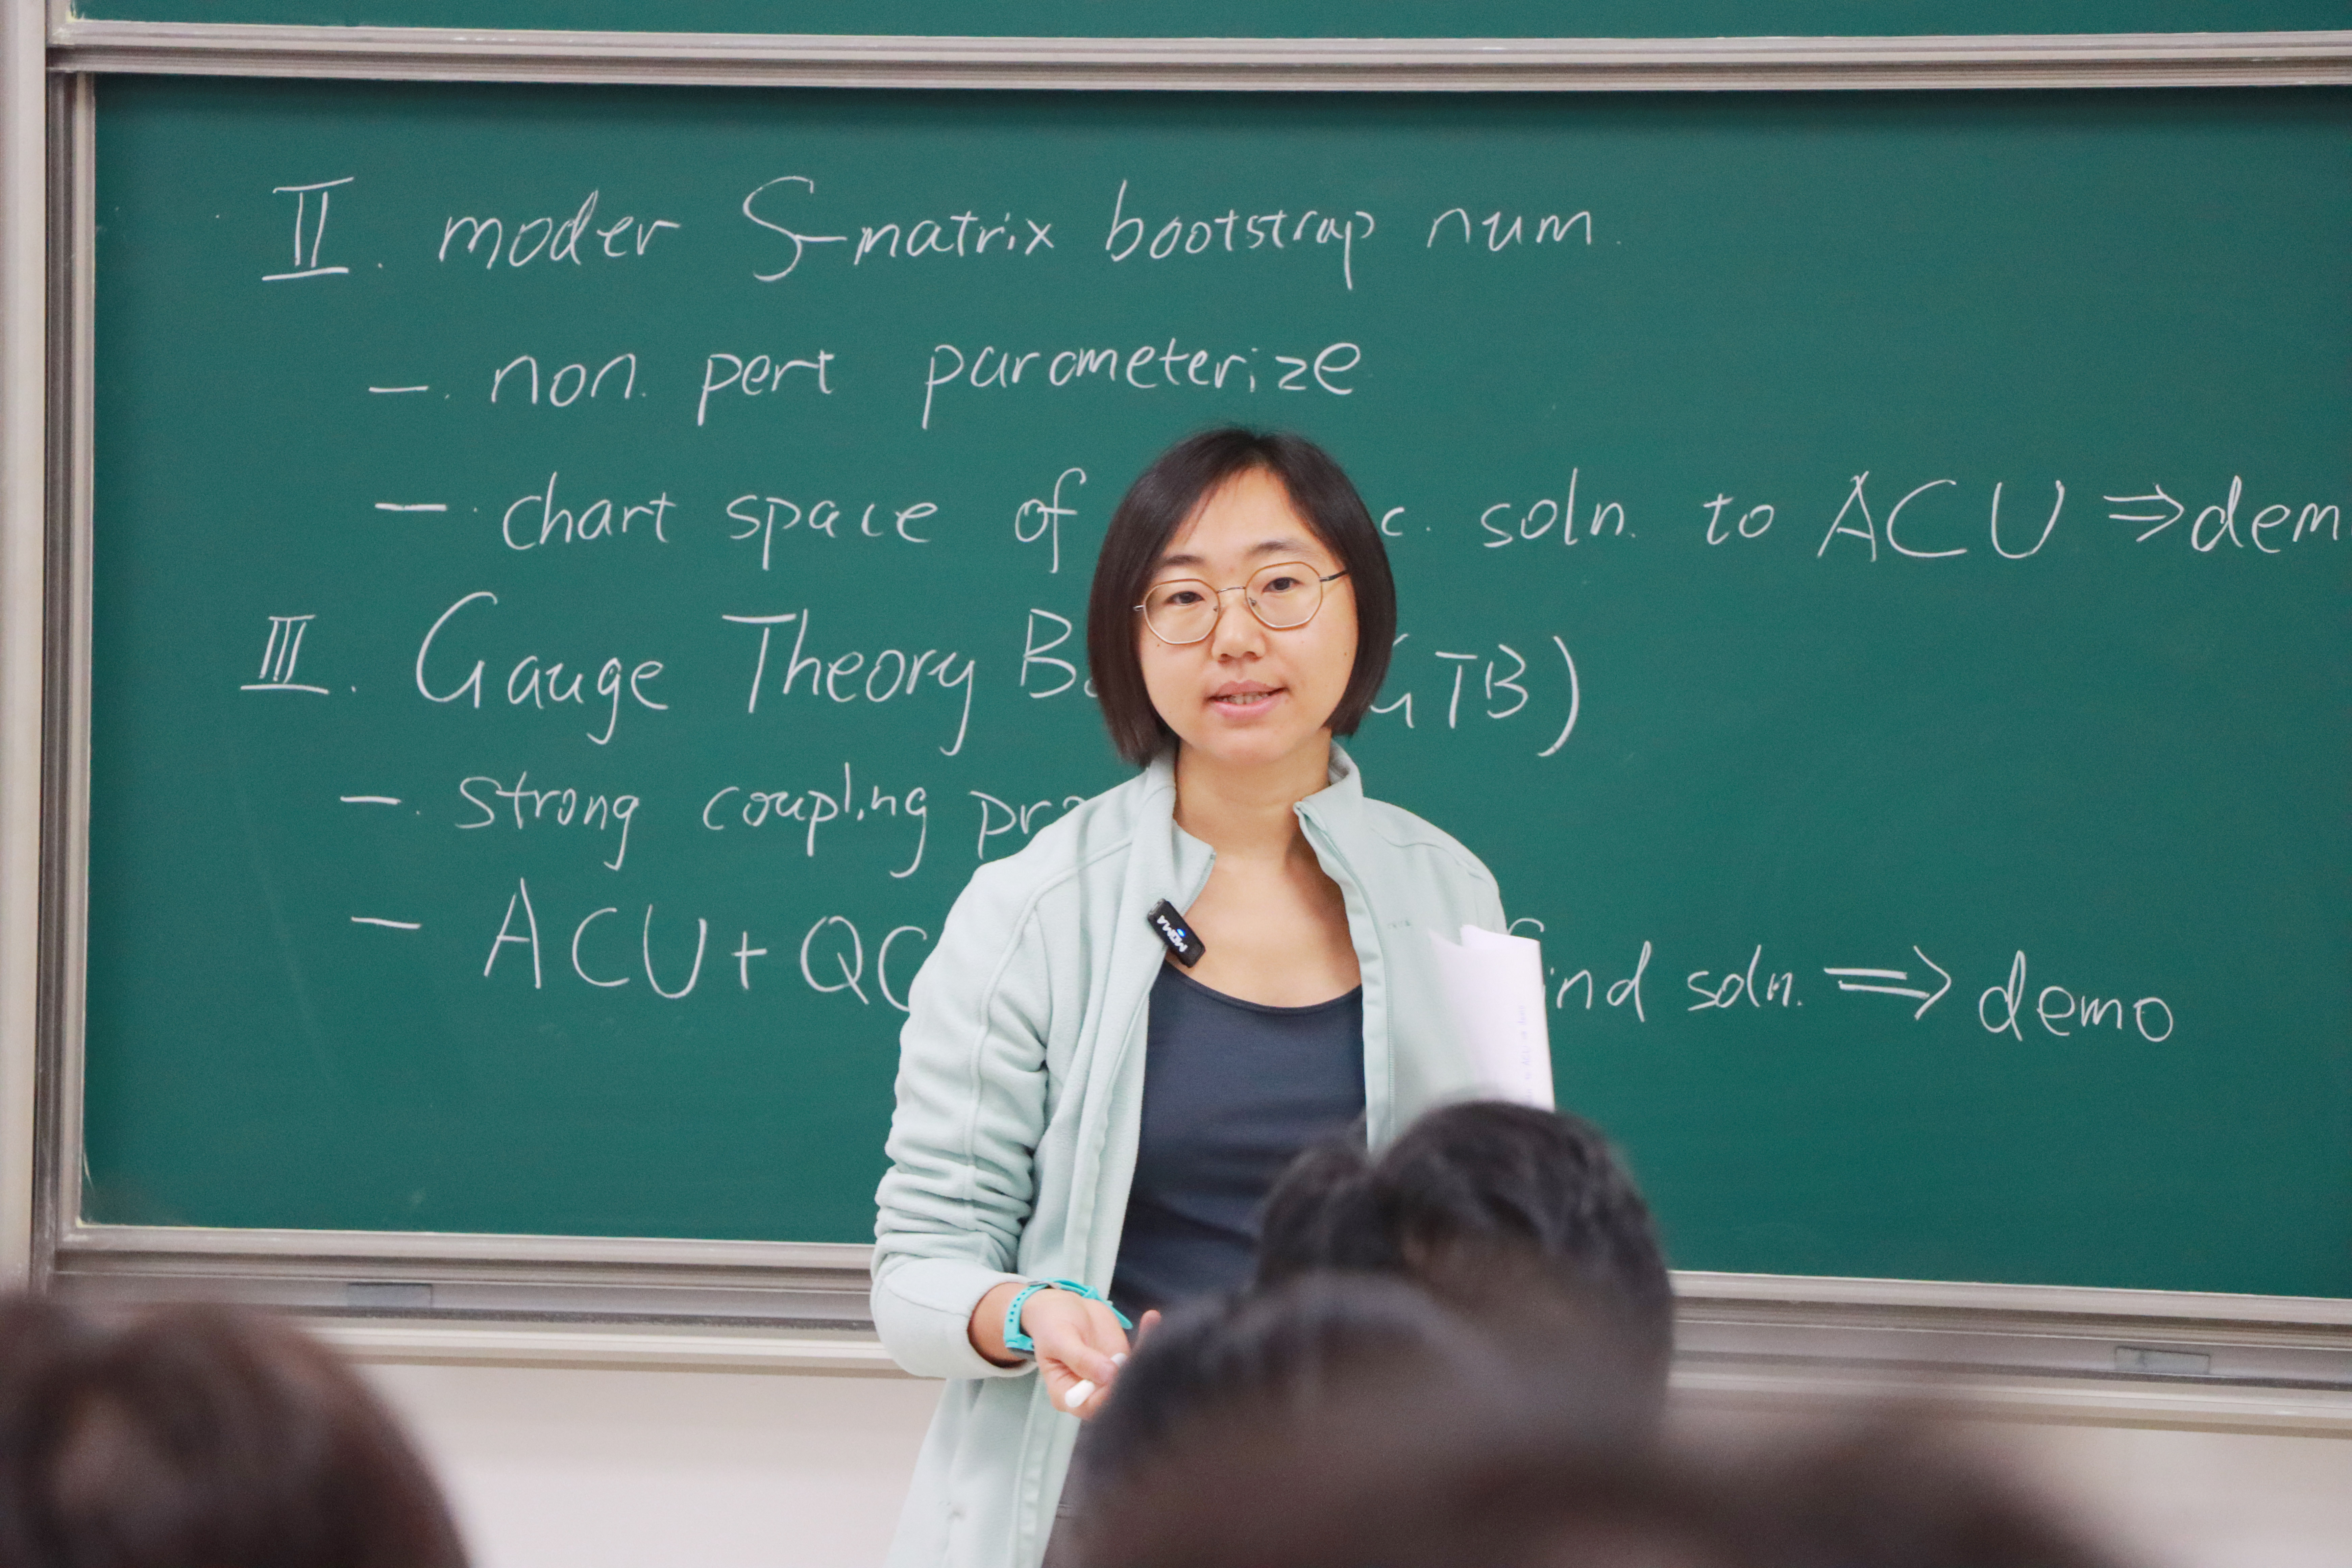 II. moder S-matrix bootstrap num.
- non. pert parameterize
- chart space of c. soln. to ACU ⇒ dem
III. Gauge Theory GTB)
- strong coupling
- ACU + QC find soln. ⇒ demo
MOMA